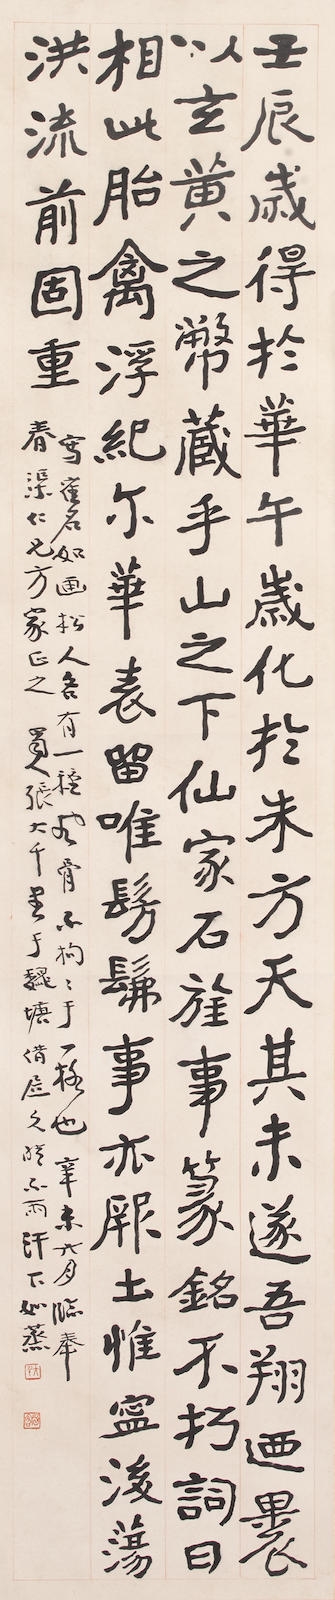 壬辰歲得於華午歲化於朱方天其未遂吾翔迺裹
以玄黄之幣藏乎山之下仙家石旌事篆銘不朽詞曰
相此胎禽浮紀尔華表留唯髣髴事亦厥土惟寧後蕩
洪流前固重
寫崔名如画松人各有一種風骨不拘〻于一格也 辛未六月臨奉
春渠仁兄方家正之 蜀人張大千書于魏塘借居久晴不雨汗下如蒸